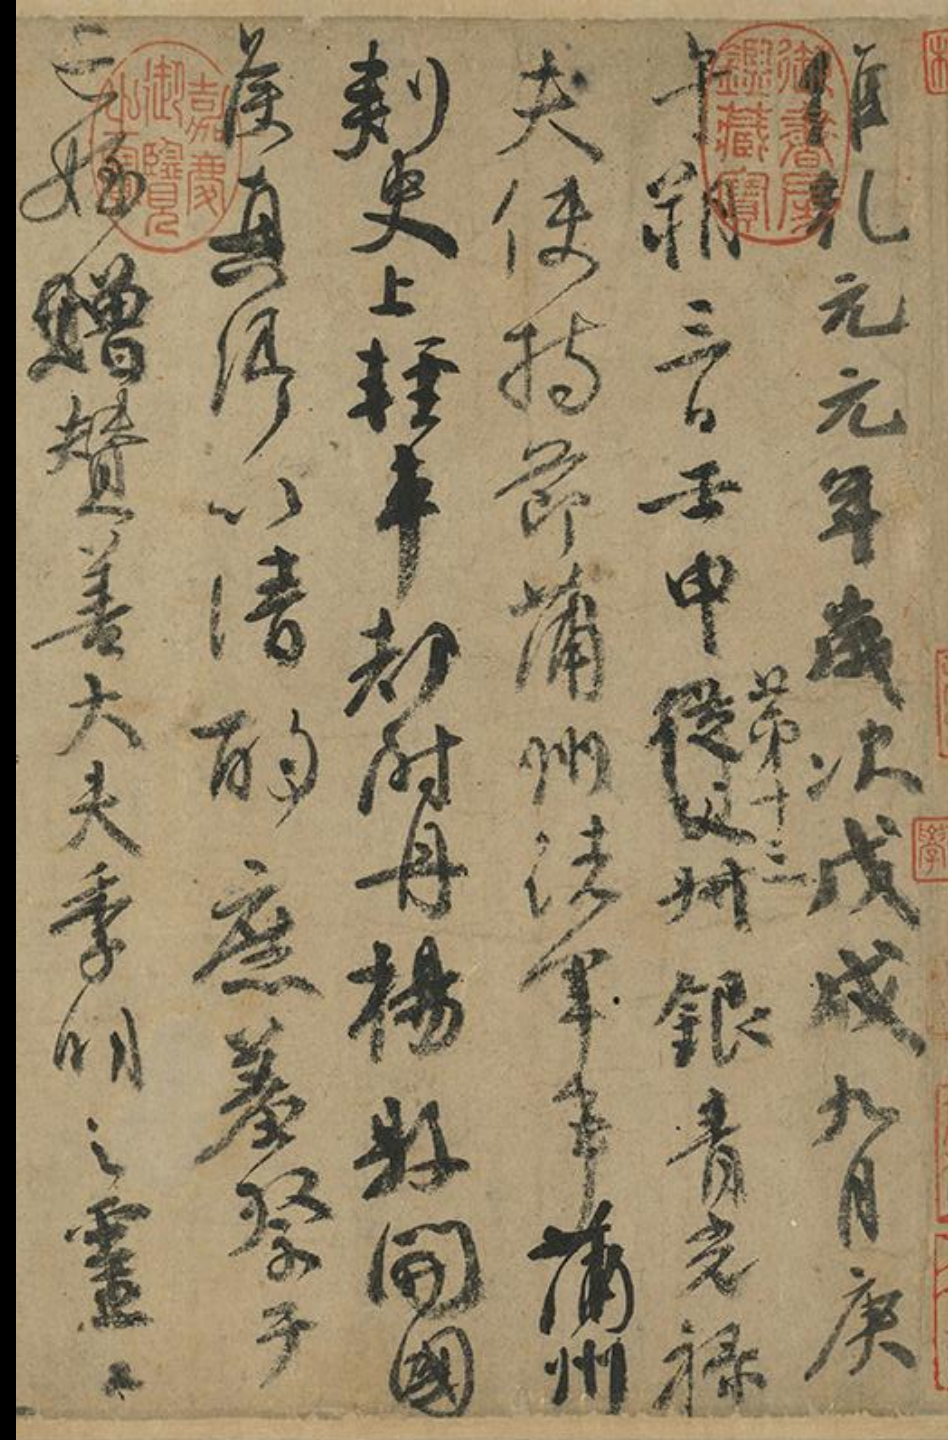 維乾元元年歲次戊戌九月庚
午朔三日壬申第十三從父
銀青光祿
夫使持節蒲州諸軍事蒲州
刺史上輕車都尉丹楊縣開國
侯真卿以清酌庶羞祭于
亡姪贈贊善大夫季明之靈
嘉慶御覽之寶
御書房鑑藏寶